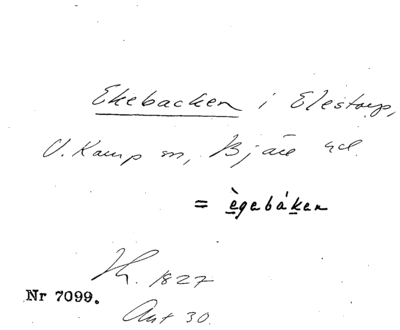 Ekebacken i Elestorp,
V. Karup sn, Bjäre hd.
= ègebáken
Th. 1827
Nr 7099.
Ant 30